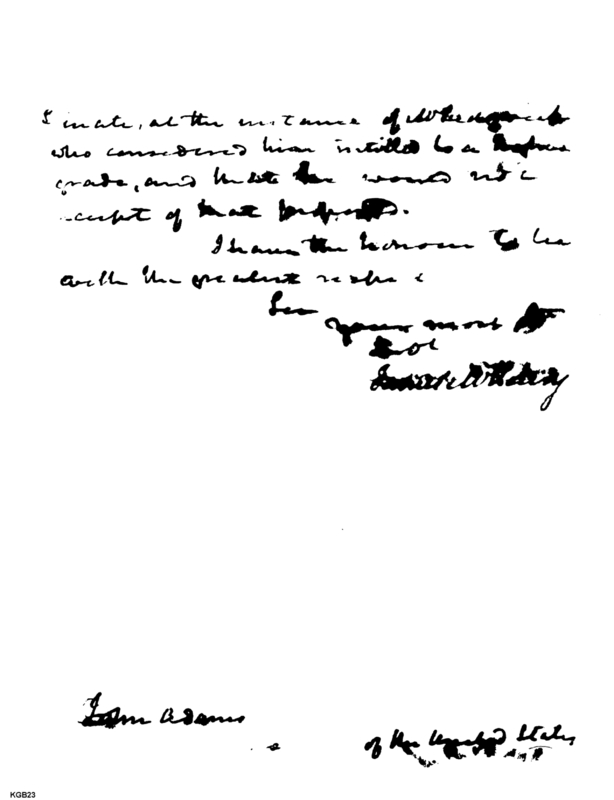 Senate, at the instance of
who considered him intitled to a higher
grade, and that he would not
accept of that proposed.
I have the honour to be
with the greatest respect
Sir
your most
James McHenry
John Adams
of the United States
KGB23